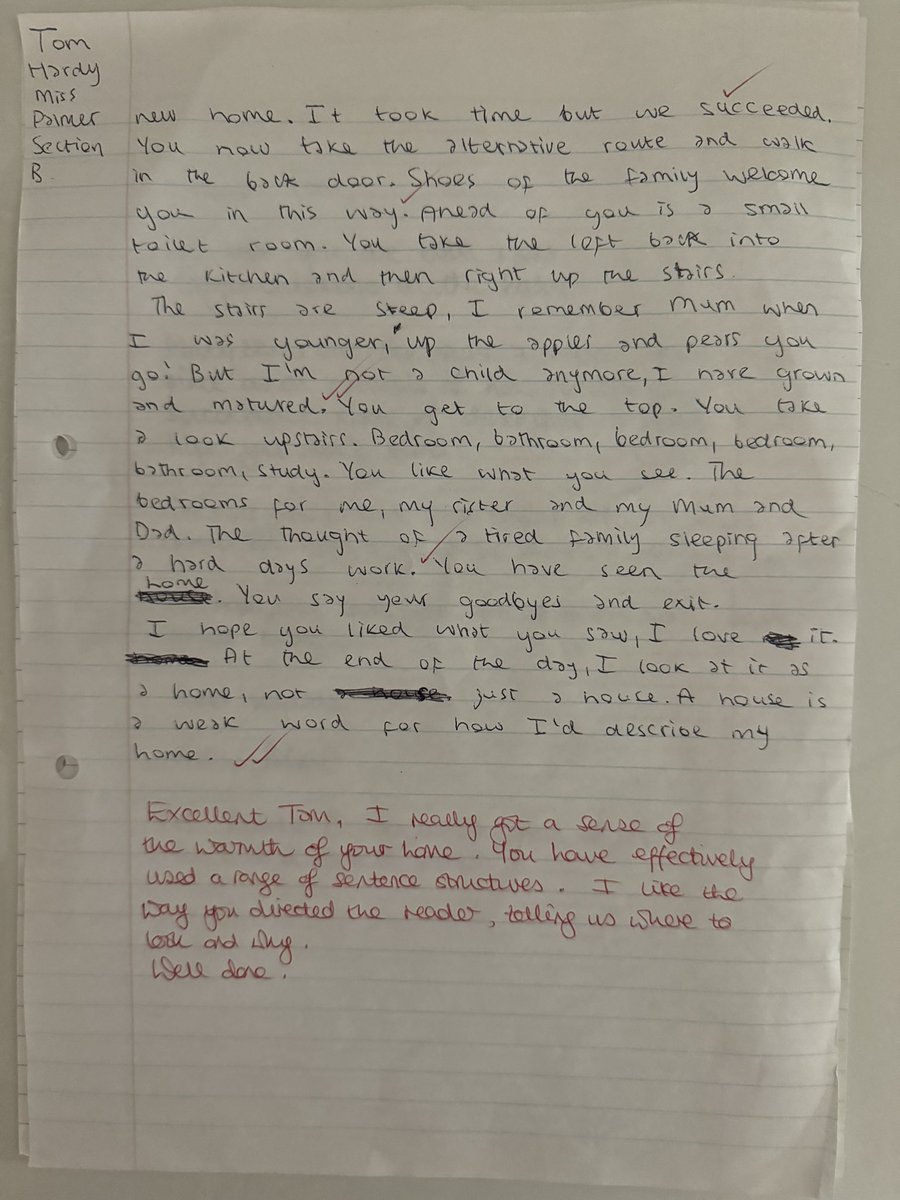 Tom
Hardy
Miss
Palmer
Section
B.
new home. It took time but we succeeded.
You now take the alternative route and walk
in the back door. Shoes of the family welcome
you in this way. Ahead of you is a small
toilet room. You take the left back into
the kitchen and then right up the stairs.
The stairs are steep, I remember Mum when
I was younger, "up the apples and pears you
go! But I'm not a child anymore, I have grown
and matured. You get to the top. You take
a look upstairs. Bedroom, bathroom, bedroom, bedroom,
bathroom, study. You like what you see. The
bedrooms for me, my sister and my Mum and
Dad. The thought of a tired family sleeping after
a hard days work. You have seen the
home. You say your goodbyes and exit.
I hope you liked what you saw, I love it.
At the end of the day, I look at it as
a home, not just a house. A house is
a weak word for how I'd describe my
home.
Excellent Tom, I really got a sense of
the warmth of your home. You have effectively
used a range of sentence structures. I like the
way you directed the reader, telling us where to
look and why.
Well done.